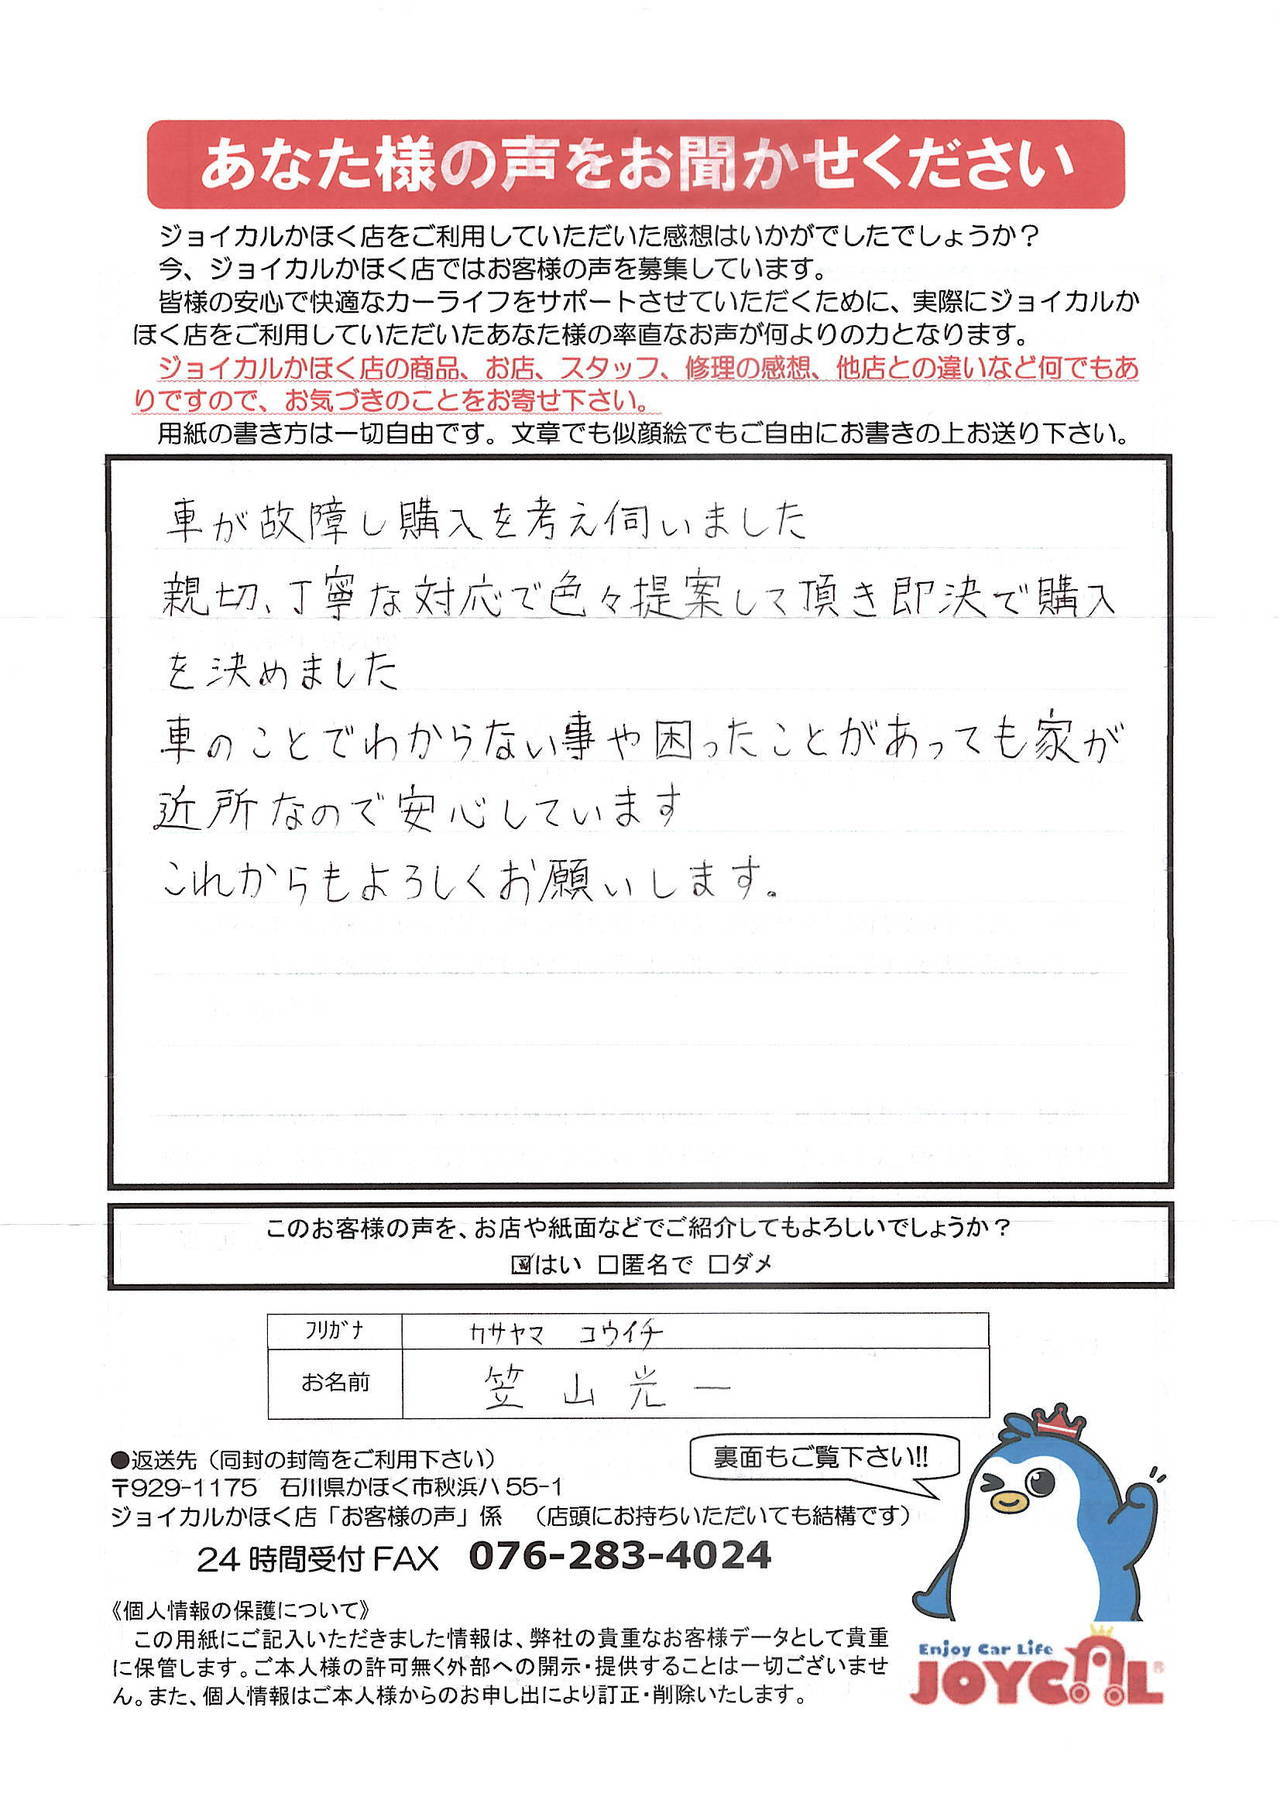 あなた様の声をお聞かせください
ジョイカルかほく店をご利用していただいた感想はいかがでしたでしょうか？
今、ジョイカルかほく店ではお客様の声を募集しています。
皆様の安心で快適なカーライフをサポートさせていただくために、実際にジョイカルか
ほく店をご利用していただいたあなた様の率直なお声が何よりの力となります。
ジョイカルかほく店の商品、お店、スタッフ、修理の感想、他店との違いなど何でもあ
りですので、お気づきのことをお寄せ下さい。
用紙の書き方は一切自由です。文章でも似顔絵でもご自由にお書きの上お送り下さい。
車が故障し購入を考え伺いました
親切、丁寧な対応で色々提案して頂き即決で購入
を決めました
車のことでわからない事や困ったことがあっても家が
近所なので安心しています
これからもよろしくお願いします。
このお客様の声を、お店や紙面などでご紹介してもよろしいでしょうか？
☑はい □匿名で □ダメ
ﾌﾘｶﾞﾅ カサヤマ コウイチ
お名前 笠山光一
裏面もご覧下さい!!
●返送先（同封の封筒をご利用下さい）
〒929-1175 石川県かほく市秋浜ハ55-1
ジョイカルかほく店「お客様の声」係 （店頭にお持ちいただいても結構です）
24時間受付FAX 076-283-4024
《個人情報の保護について》
この用紙にご記入いただきました情報は、弊社の貴重なお客様データとして貴重
に保管します。ご本人様の許可無く外部への開示・提供することは一切ございませ
ん。また、個人情報はご本人様からのお申し出により訂正・削除いたします。
Enjoy Car Life
JOYCAL®